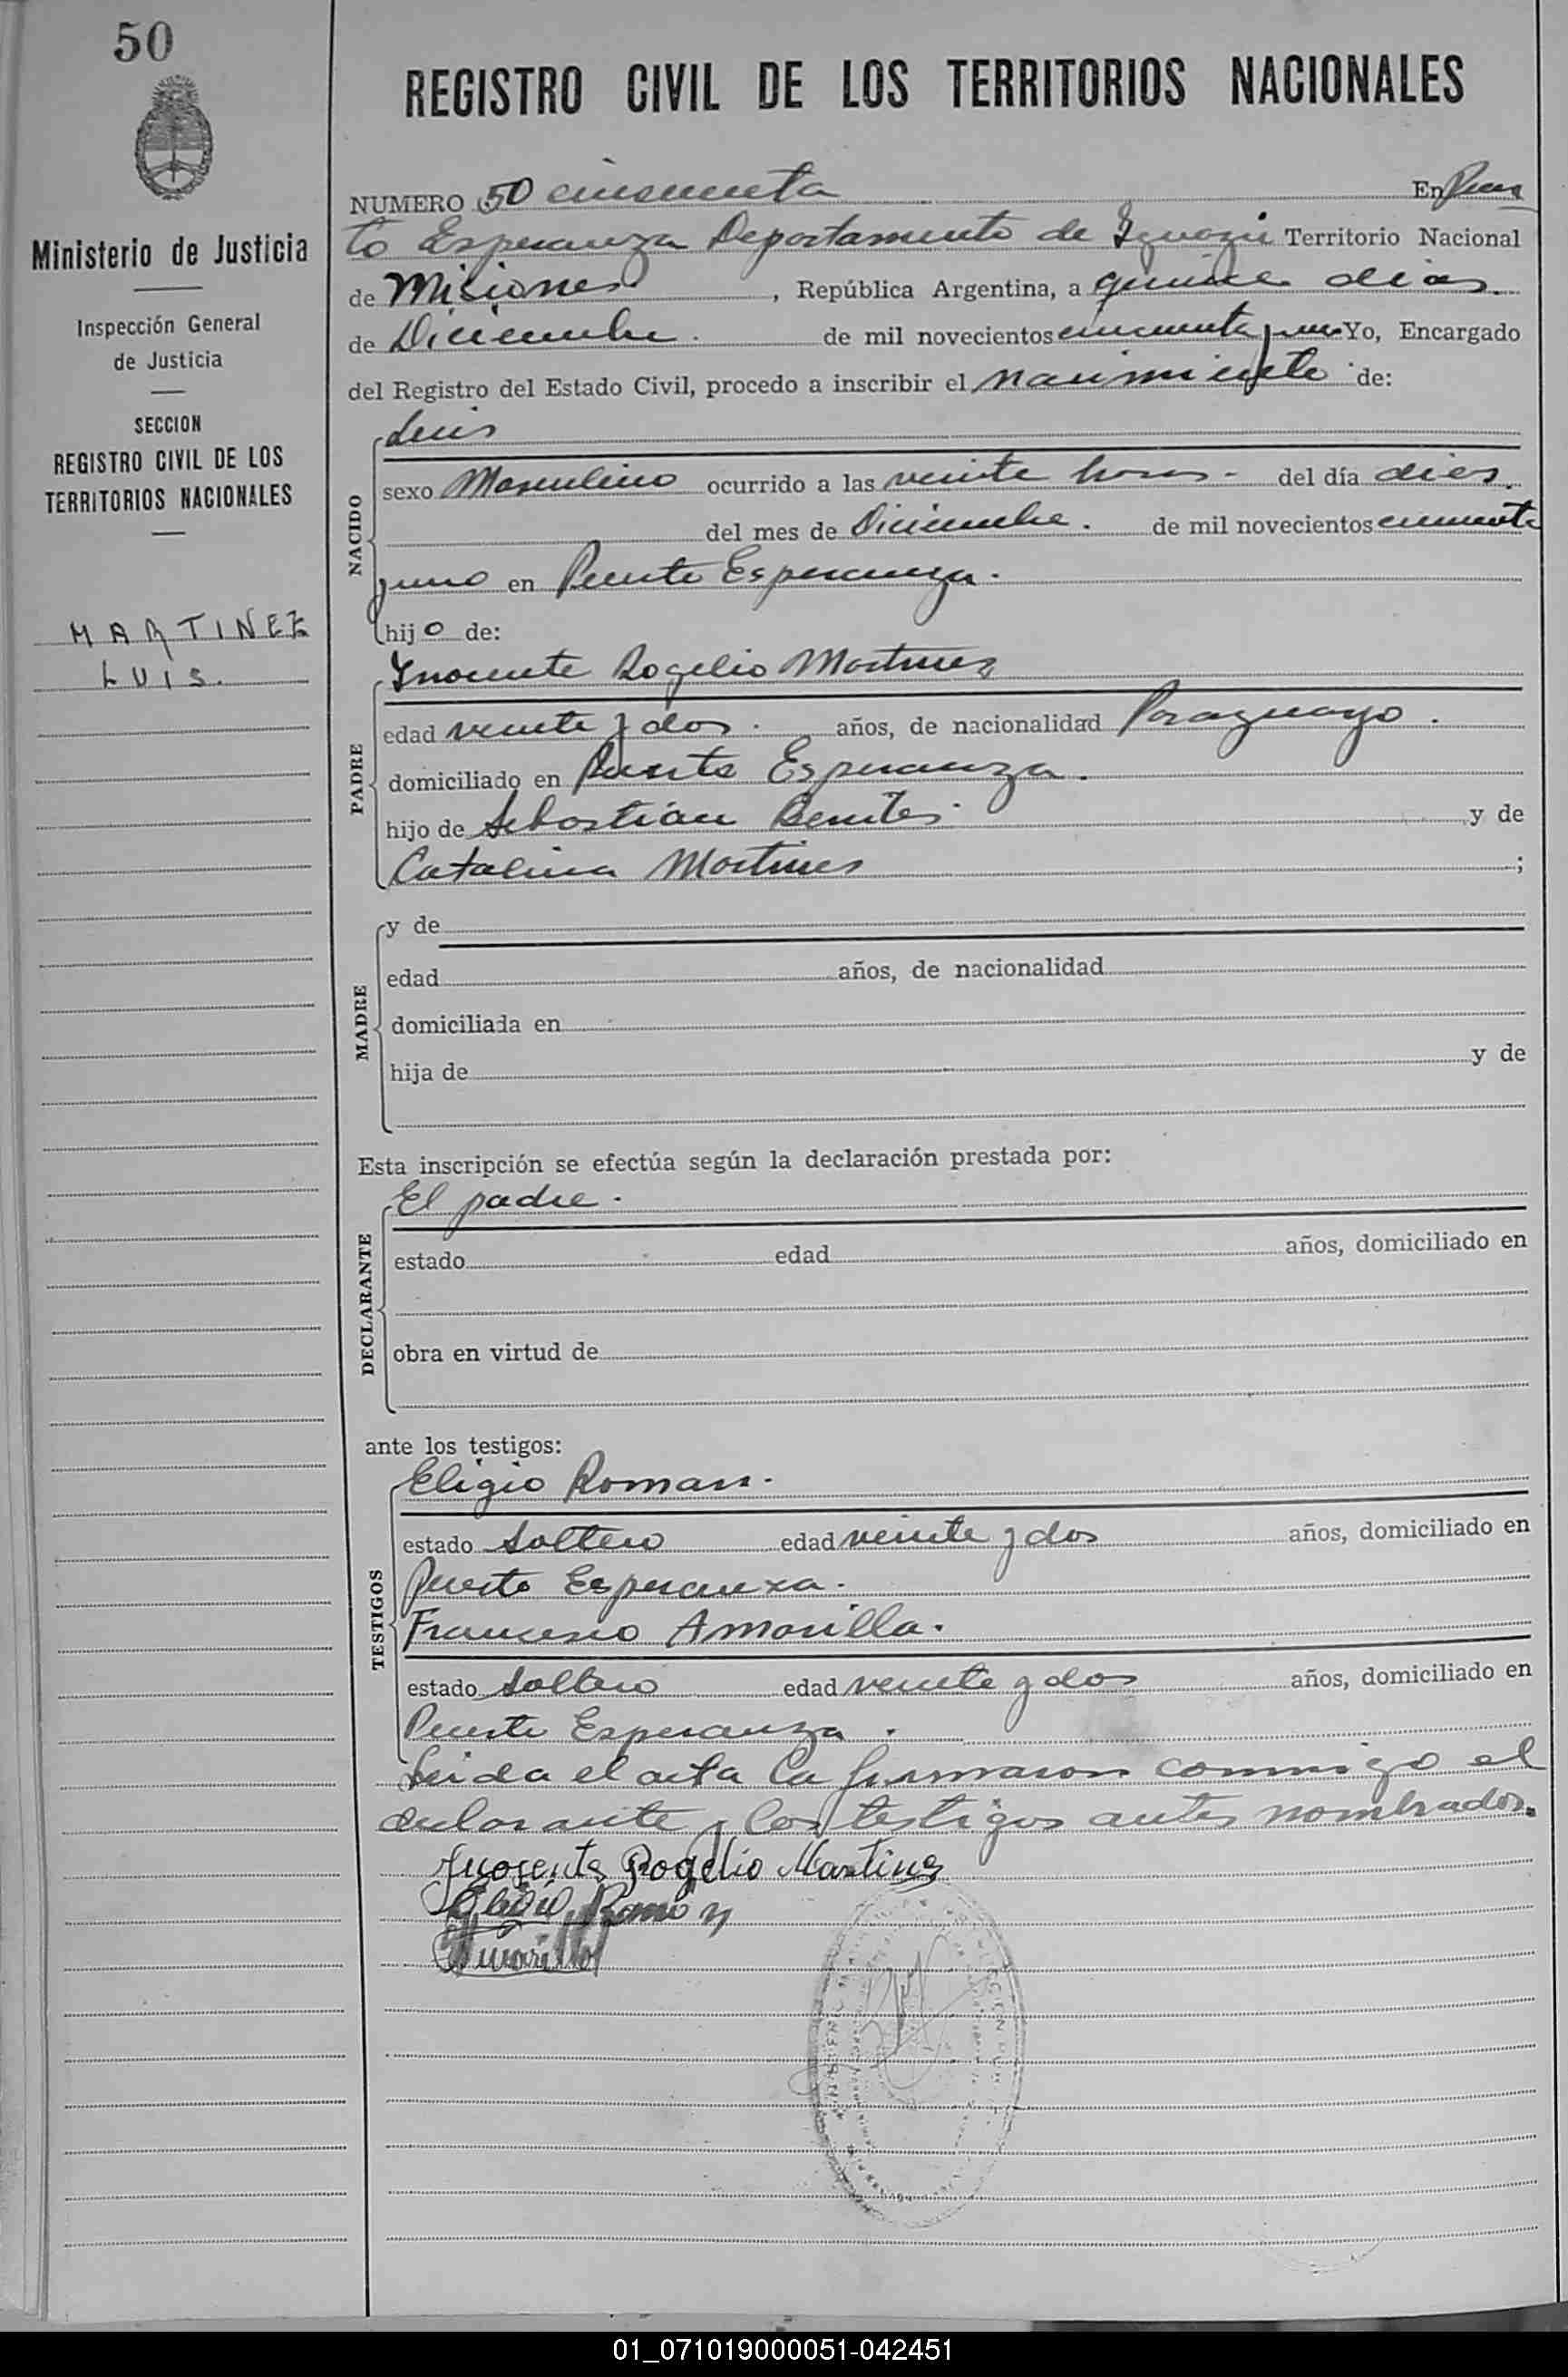 50
Ministerio de Justicia
Inspección General
de Justicia
SECCION
REGISTRO CIVIL DE LOS
TERRITORIOS NACIONALES
MARTINEZ
LUIS.
REGISTRO CIVIL DE LOS TERRITORIOS NACIONALES
NUMERO 50 cincuenta En Puer
to Esperanza Departamento de Iguazú Territorio Nacional
de Misiones, República Argentina, a quince dias
de Diciembre. de mil novecientos cincuenta y uno Yo, Encargado
del Registro del Estado Civil, procedo a inscribir el nacimiento de:
NACIDO
Luis
sexo Masculino ocurrido a las veinte horas - del día dies
del mes de Diciembre. de mil novecientos cincuenta
y uno en Puerto Esperanza.
hijo de:
PADRE
Ynocente Rogelio Martines
edad veinte y dos. años, de nacionalidad Paraguayo.
domiciliado en Puerto Esperanza.
hijo de Sebastián Benites. y de
Catalina Martines ;
MADRE
y de
edad años, de nacionalidad
domiciliada en
hija de y de
Esta inscripción se efectúa según la declaración prestada por:
DECLARANTE
El padre.
estado edad años, domiciliado en
obra en virtud de
ante los testigos:
TESTIGOS
Eligio Roman.
estado Soltero edad veinte y dos años, domiciliado en
Puerto Esperanza.
Francisco Amarilla.
estado Soltero edad veinte y dos años, domiciliado en
Puerto Esperanza.
Leida el acta la firmaron conmigo el
declarante y los testigos antes nombrados.
Ynosente Rogelio Martines
Roman
Amarilla
01_071019000051-042451